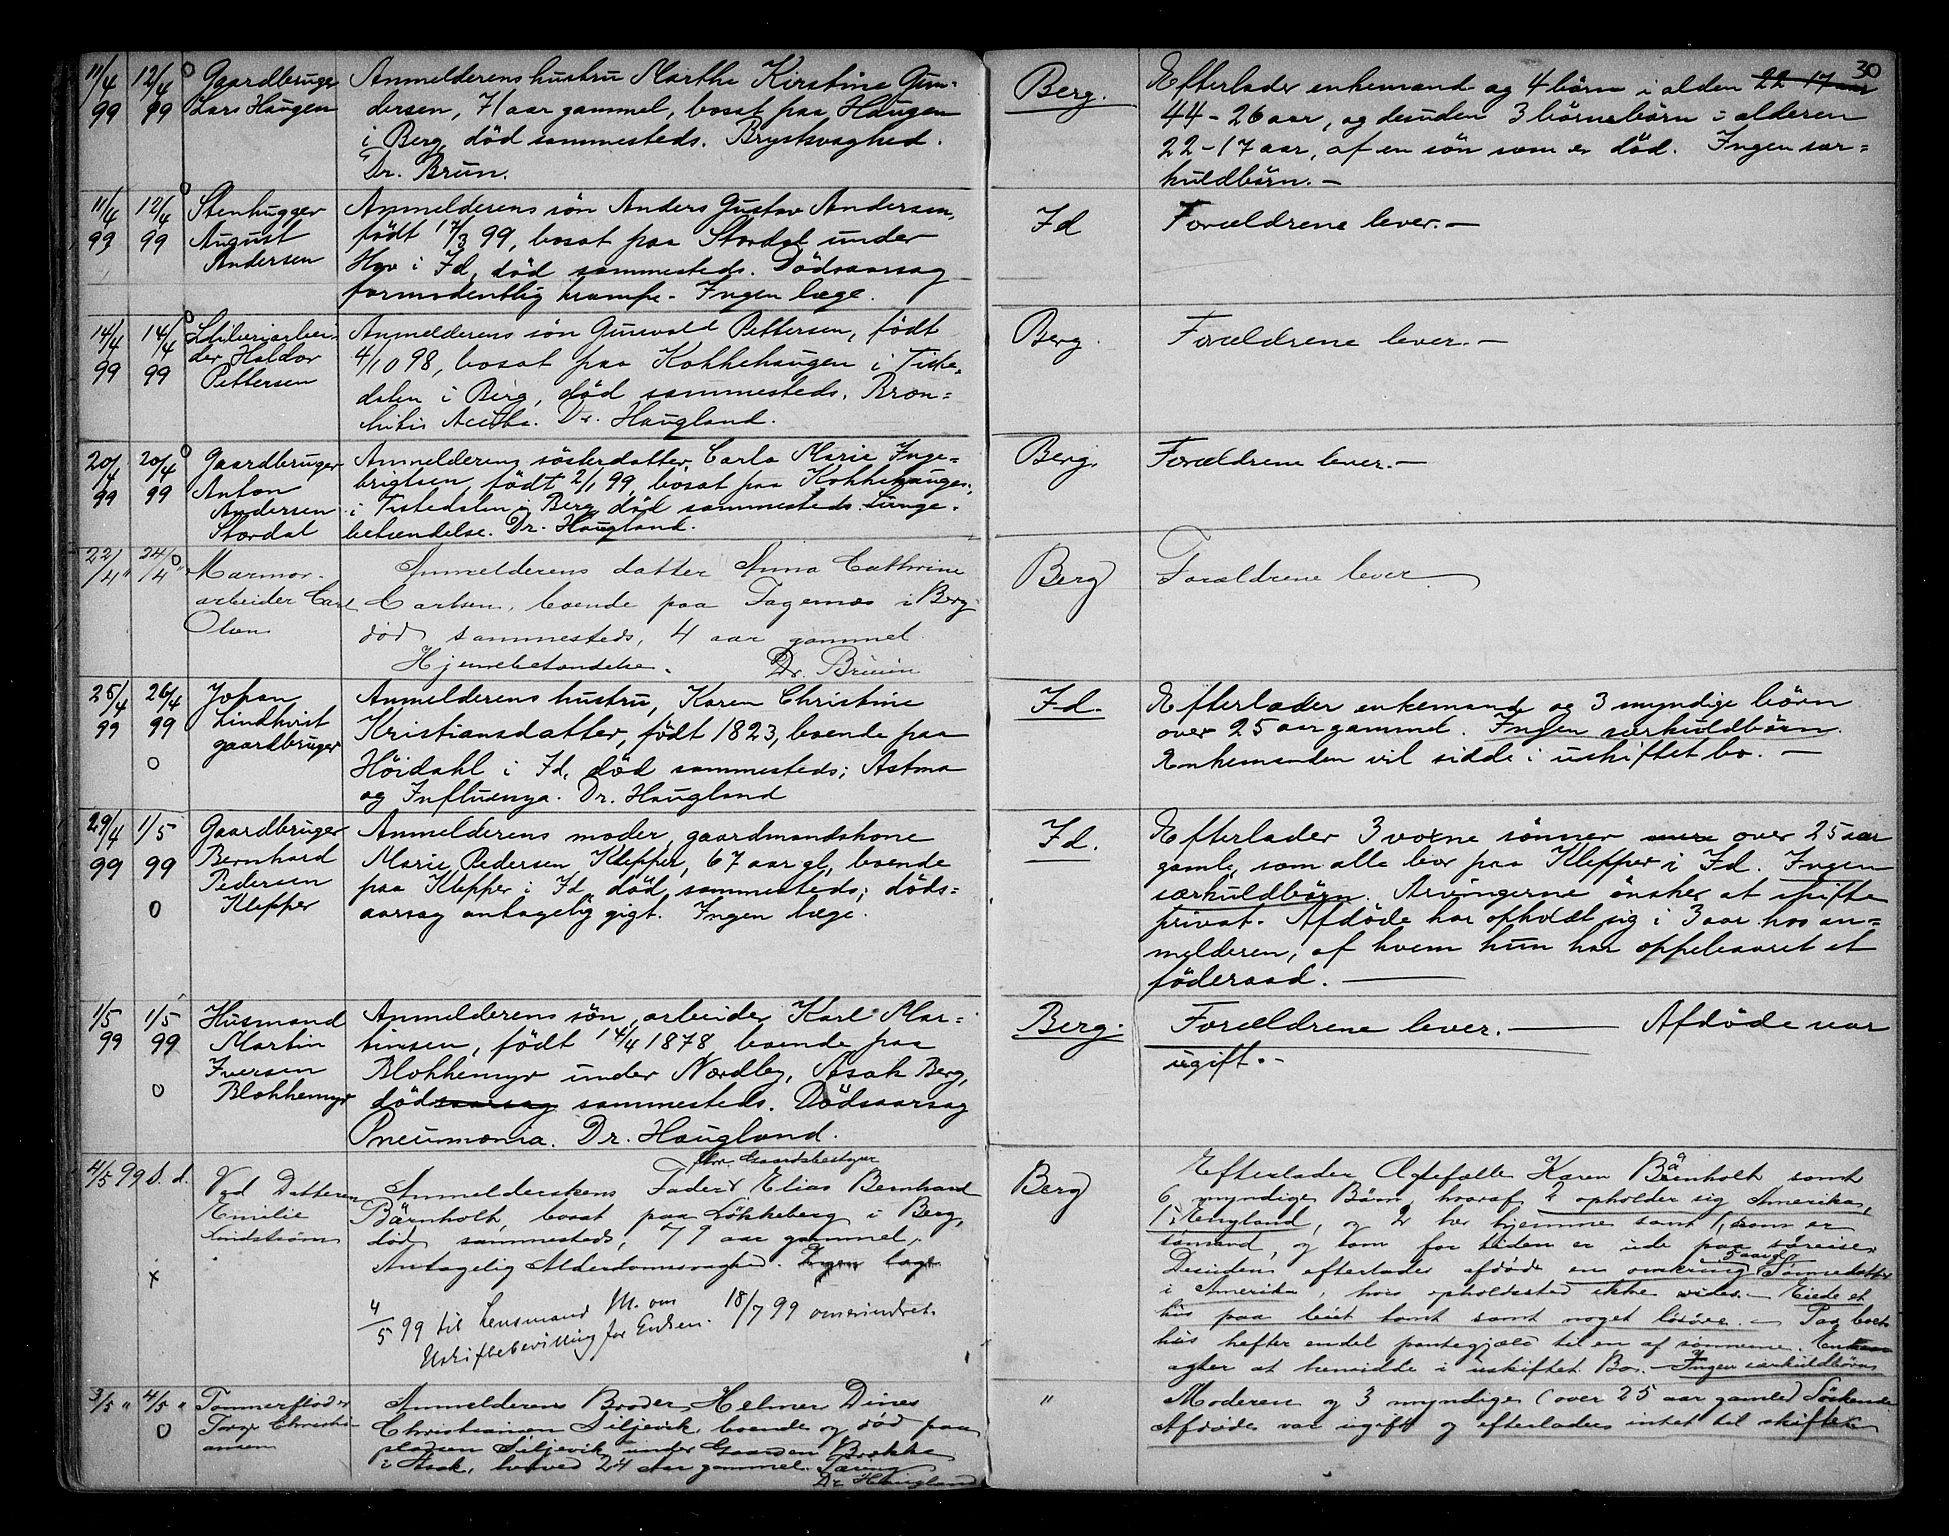 30
11/4 99 12/4 99 Gaardbruger Lars Haugen
Anmelderens hustru Marthe Kirstine Gun-
dersen, 71 aar gammel, bosat paa Haugen
i Berg, död sammesteds. Brystsvaghed.
Dr. Brun.
Berg.
Efterlader enkemand og 4 börn i alden 22-17 aar
44-26 aar, og desuden 3 börnebörn i alderen
22-17 aar, af en sön som er död. Ingen sær=
kuldbörn.-
11/4 99 12/4 99 Stenhugger August Andersen
Anmelderens sön Anders Gustav Andersen,
födt 17/3 99, bosat paa Stordal under
Hov i Id, död sammesteds. Dödsaarsag
formodentlig krampe. Ingen læge.
Id
Forældrene lever.-
14/4 99 14/4 99 Haldor Pettersen
Anmelderens sön Gunvald Pettersen, födt
4/10 98, bosat paa Kokkehaugen i Tiste-
dalen i Berg, död sammesteds. Bron=
kitis Acuta. Dr. Haugland.
Berg.
Forældrene lever.-
20/4 99 20/4 99 Gaardbruger Anton Andersen Stordal
Anmelderens sösterdatter, Carla Marie Inge=
brigtsen, födt 2/1 99, bosat paa Kokkehaugen,
i Tistedalen i Berg, död sammesteds. Lunge-
betændelse. Dr. Haugland.
Berg.
Forældrene lever.-
22/4 " 24/4 " Marmor-
arbeider Carl
Olsen
Anmelderens datter Anna Cathrine
Carlsen, boende paa Tagernæs i Berg
död sammesteds, 4 aar gammel.
Hjernebetændelse. Dr. Bruun
Berg
Forældrene lever
25/4 99 26/4 99 Johan Lindkvist gaardbruger
Anmelderens hustru, Karen Christine
Kristiansdatter, födt 1823, boende paa
Höidahl i Id, död sammesteds; Astma
og Influenza. Dr. Haugland
Id.
Efterlader enkemand og 3 myndige börn
over 25 aar gammel. Ingen særkuldbörn.
Enkemanden vil sidde i uskiftet bo.-
29/4 99 1/5 99 Gaardbruger Bernhard Pedersen Klepper
Anmelderens moder, gaardmandskone
Marie Pedersen Klepper, 67 aar gl, boende
paa Klepper i Id, död sammesteds; döds=
aarsag antagelig gigt. Ingen læge.
Id.
Efterlader 3 voxne sönner over 25 aar
gamle, som alle bor paa Klepper i Id. Ingen
særkuldbörn. Arvingerne önsker at skifte
privat. Afdöde har opholdt sig i 3 aar hos an=
melderen, af hvem hun har oppebaaret et
föderaad.
1/5 99 1/5 99 Husmand Martin Iversen Blokkemyr
Anmelderens sön, arbeider Karl Mar=
tinsen, födt 14/4 1878 boende paa
Blokkemyr under Nordby, Asak Berg,
dödsaarsag sammesteds. Dödsaarsag
Pneumonia. Dr. Haugland.
Berg.
Forældrene lever. Afdöde var
ugift.-
4/5 99 S. d. Ved Datteren
Emilie
Lindström
x
Anmelderskens Fader Elias Bernhard
Bärnholt, bosat paa Lökkeberg i Berg,
död sammesteds, 79 aar gammel.
Antagelig Alderdomssvaghed. Ingen læge
4/5 99 til Lensmand M. om
Uskiftebevilling for Enken. 18/7 99 omerindret.
Berg
Efterlader Ægtefælle Karen Bärnholt samt
6 myndige Börn, hvoraf 2 opholder sig Amerika,
1 i England, og 2 her hjemme samt 1, som er
sömand, og som for tiden er ude paa söreise.
Desuden efterlader afdöde en omkring 5 aar gl Sönnedatter
i Amerika, hvis opholdssted ikke vides.- Eiede et
hus paa leiet tomt samt noget lösöre.- Paa boets
hus hefter endel pantegjæld til en af sönnerne. Enken
agter at hensidde i uskiftet Bo.- Ingen særkuldbörn
3/5 " 4/5 " Tömmerflöder
Anmelderens Broder, Helmer Dines
Christiansen Siljevik, boende og död paa
pladsen Siljevik under Gaarden Brække
i Asak, hvorved 24 aar gammel. Tæring
Dr. Haugland
"
Moderen og 3 myndige (over 25 aar gamle) Söskende
Afdöde var ugift og efterlader intet til skifte